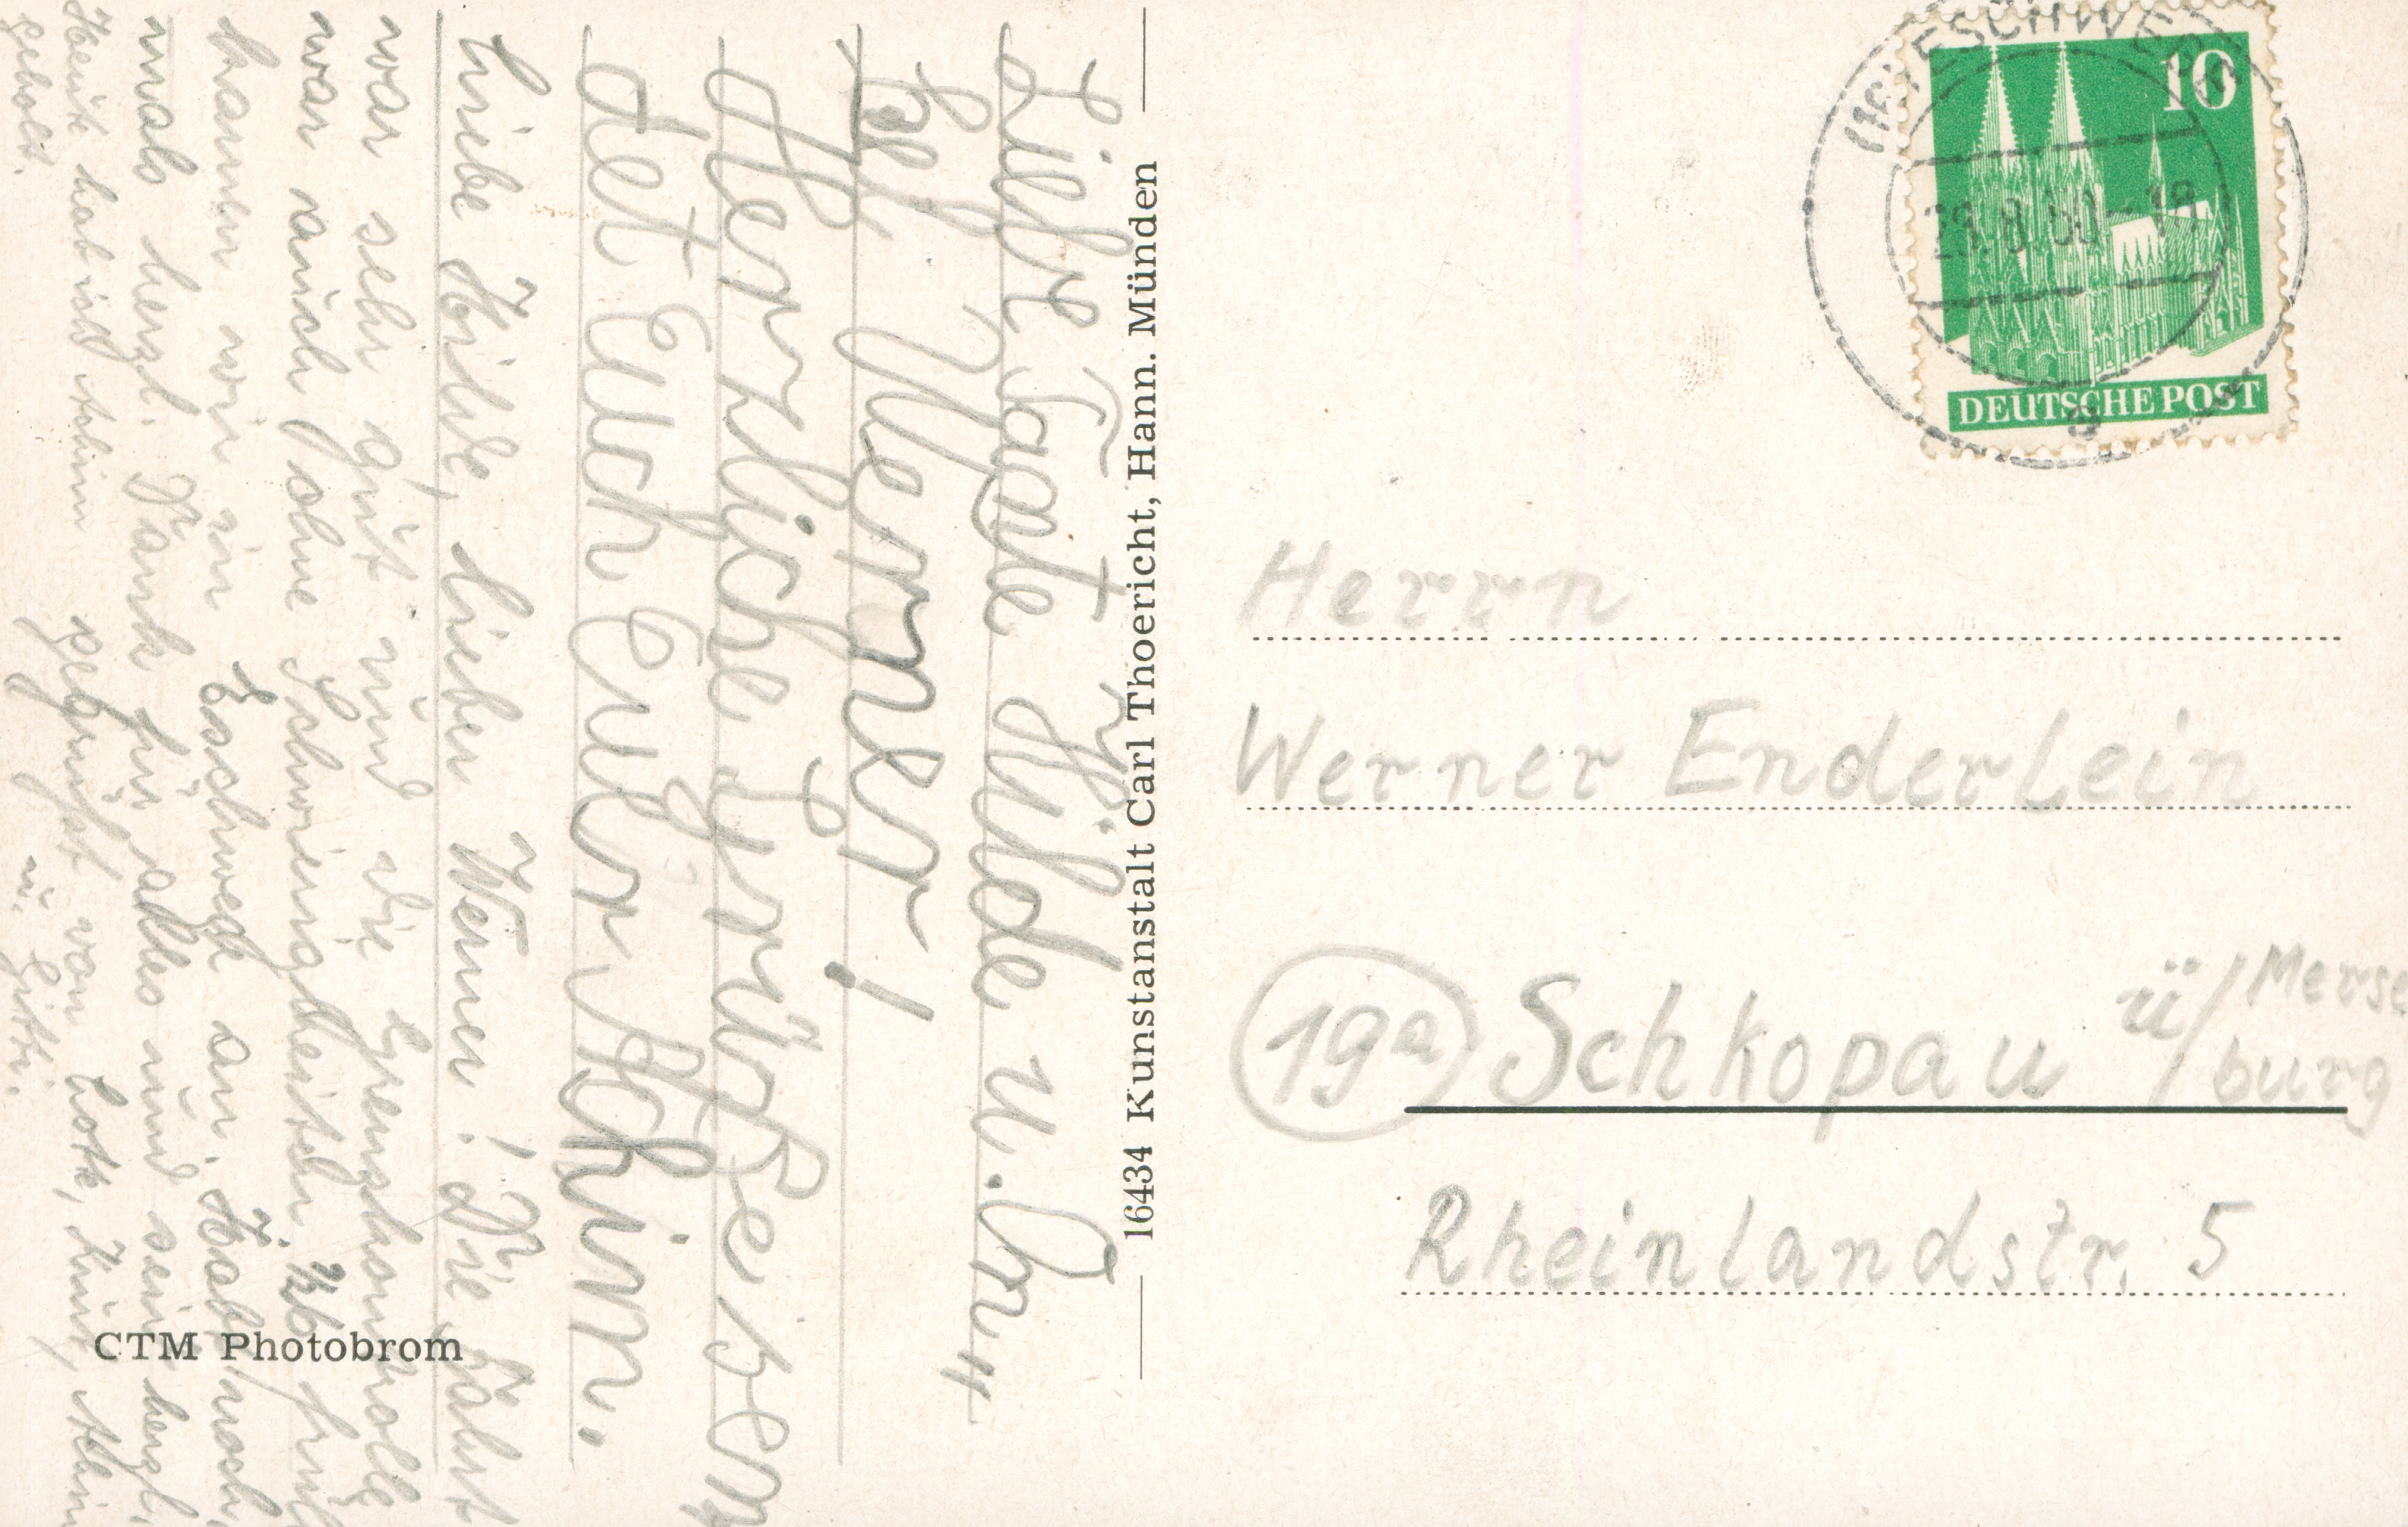 Liebe Tante Hilde u. On=
kel Werner!
Herzliche Grüße sen=
det Euch Euer Achim.
Liebe Hilde, lieber Werner! Die Fahrt
war sehr gut und die Grenzkontrolle
war auch ohne Schwierigkeiten. früh
kamen wir in Eschwege an. Habt noch=
mals herzl. Dank für alles und seid herzl.
gegrüßt von Lotte, Kurt, Achim
u. Gitti.
Heute hat uns Achim
geholt.
16434 Kunstanstalt Carl Thoericht, Hann. Münden
CTM Photobrom
10
DEUTSCHE POST
ESCHWEGE
a
Herrn
Werner Enderlein
19a Schkopau ü/Merse
burg
Rheinlandstr. 5